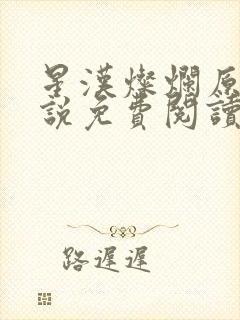 星漢燦爛原
說免費閱讀
路遲遲